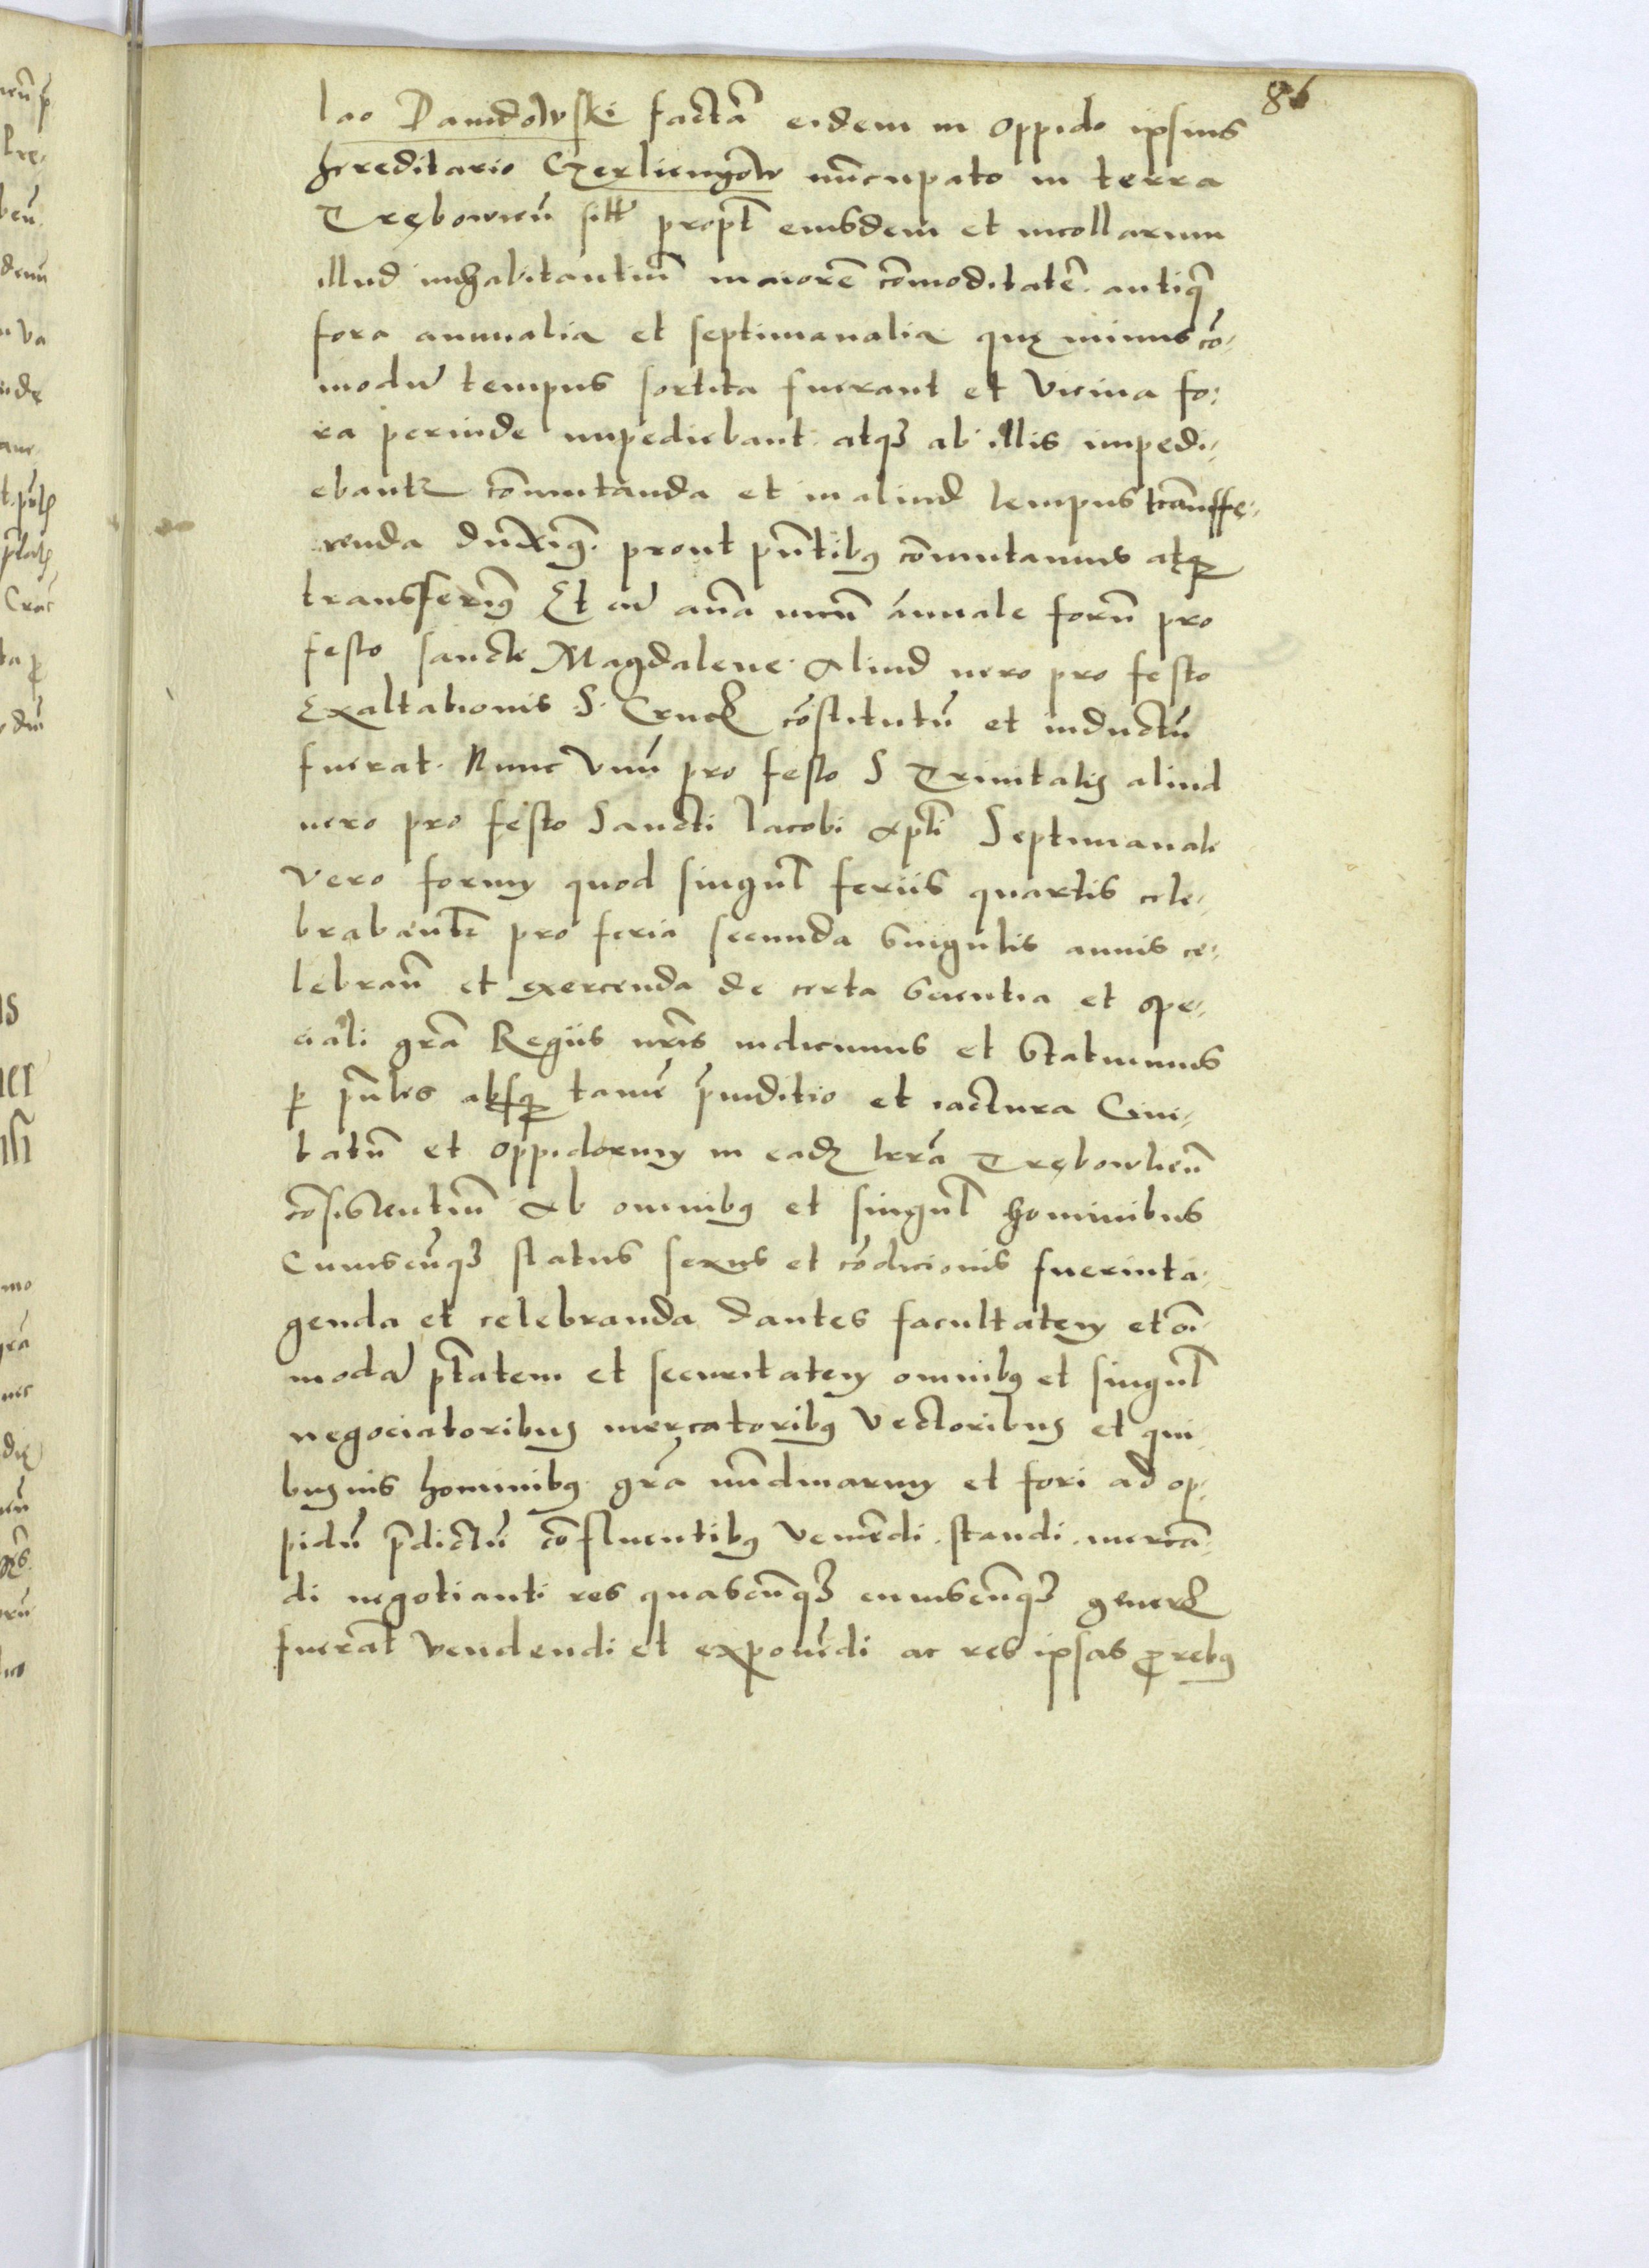 86
lao Dauidowski factā eidem in oppido ipsius
hereditario Czerliengow nūcupato in terra
Trębowień sitt propt eiusdem et incollarum
illud inhabitantiū maiorē cōmoditatē antiq̄
fora annualia et septimanalia quę minus cō-
modū tempus sortita fuerant et vicina fo-
ra perinde impediebant atqꝫ ab illis impedi-
ebantr cōmutanda et in aliud tempus trānsfe-
renda duximꝰ prout pn̄tibꝰ cōmutamus atqꝫ
transferimꝰ Et cū an̄a unū ánnuale forū pro
festo sancte Magdalene aliud vero pro festo
Exaltationis S. Crucꝭ cōstitutū et inductū
fuerat. Nunc vnū pro festo S Trinitatis aliud
vero pro festo Sancti Jacobi apli Septimanale
vero forum quod singul feriis quartis cele-
brabantr pro feria secunda singulis annis ce-
lebran̄ et exercenda de certa scientia et spe-
ciali grā Regiis nris indicimus et statuimus
ꝑ pn̄tes absqꝫ tamē p̄iuditio et iactura Ciui-
tatū et oppidorum in eadꝫ terrā Trębowlień
cōsistentiū ab omnibꝰ et singul hominibus
Cuiuscūqꝫ status sexus et cōdicionis fuerint a-
genda et celebranda dantes facultatem et oī-
modā ptatem et securitatem omnibꝰ et singul
negociatoribus mercatoribꝰ vectoribus et qui-
busuis hominibꝰ grā nūdinarum et fori ad op-
pidū p̄dictū cōfluentibꝰ veniēdi standi mercā-
di negotianti res quascūqꝫ cuiuscūqꝫ generꝭ
fuerāt vendendi et exponēdi ac res ipsas ꝓ rebꝰ